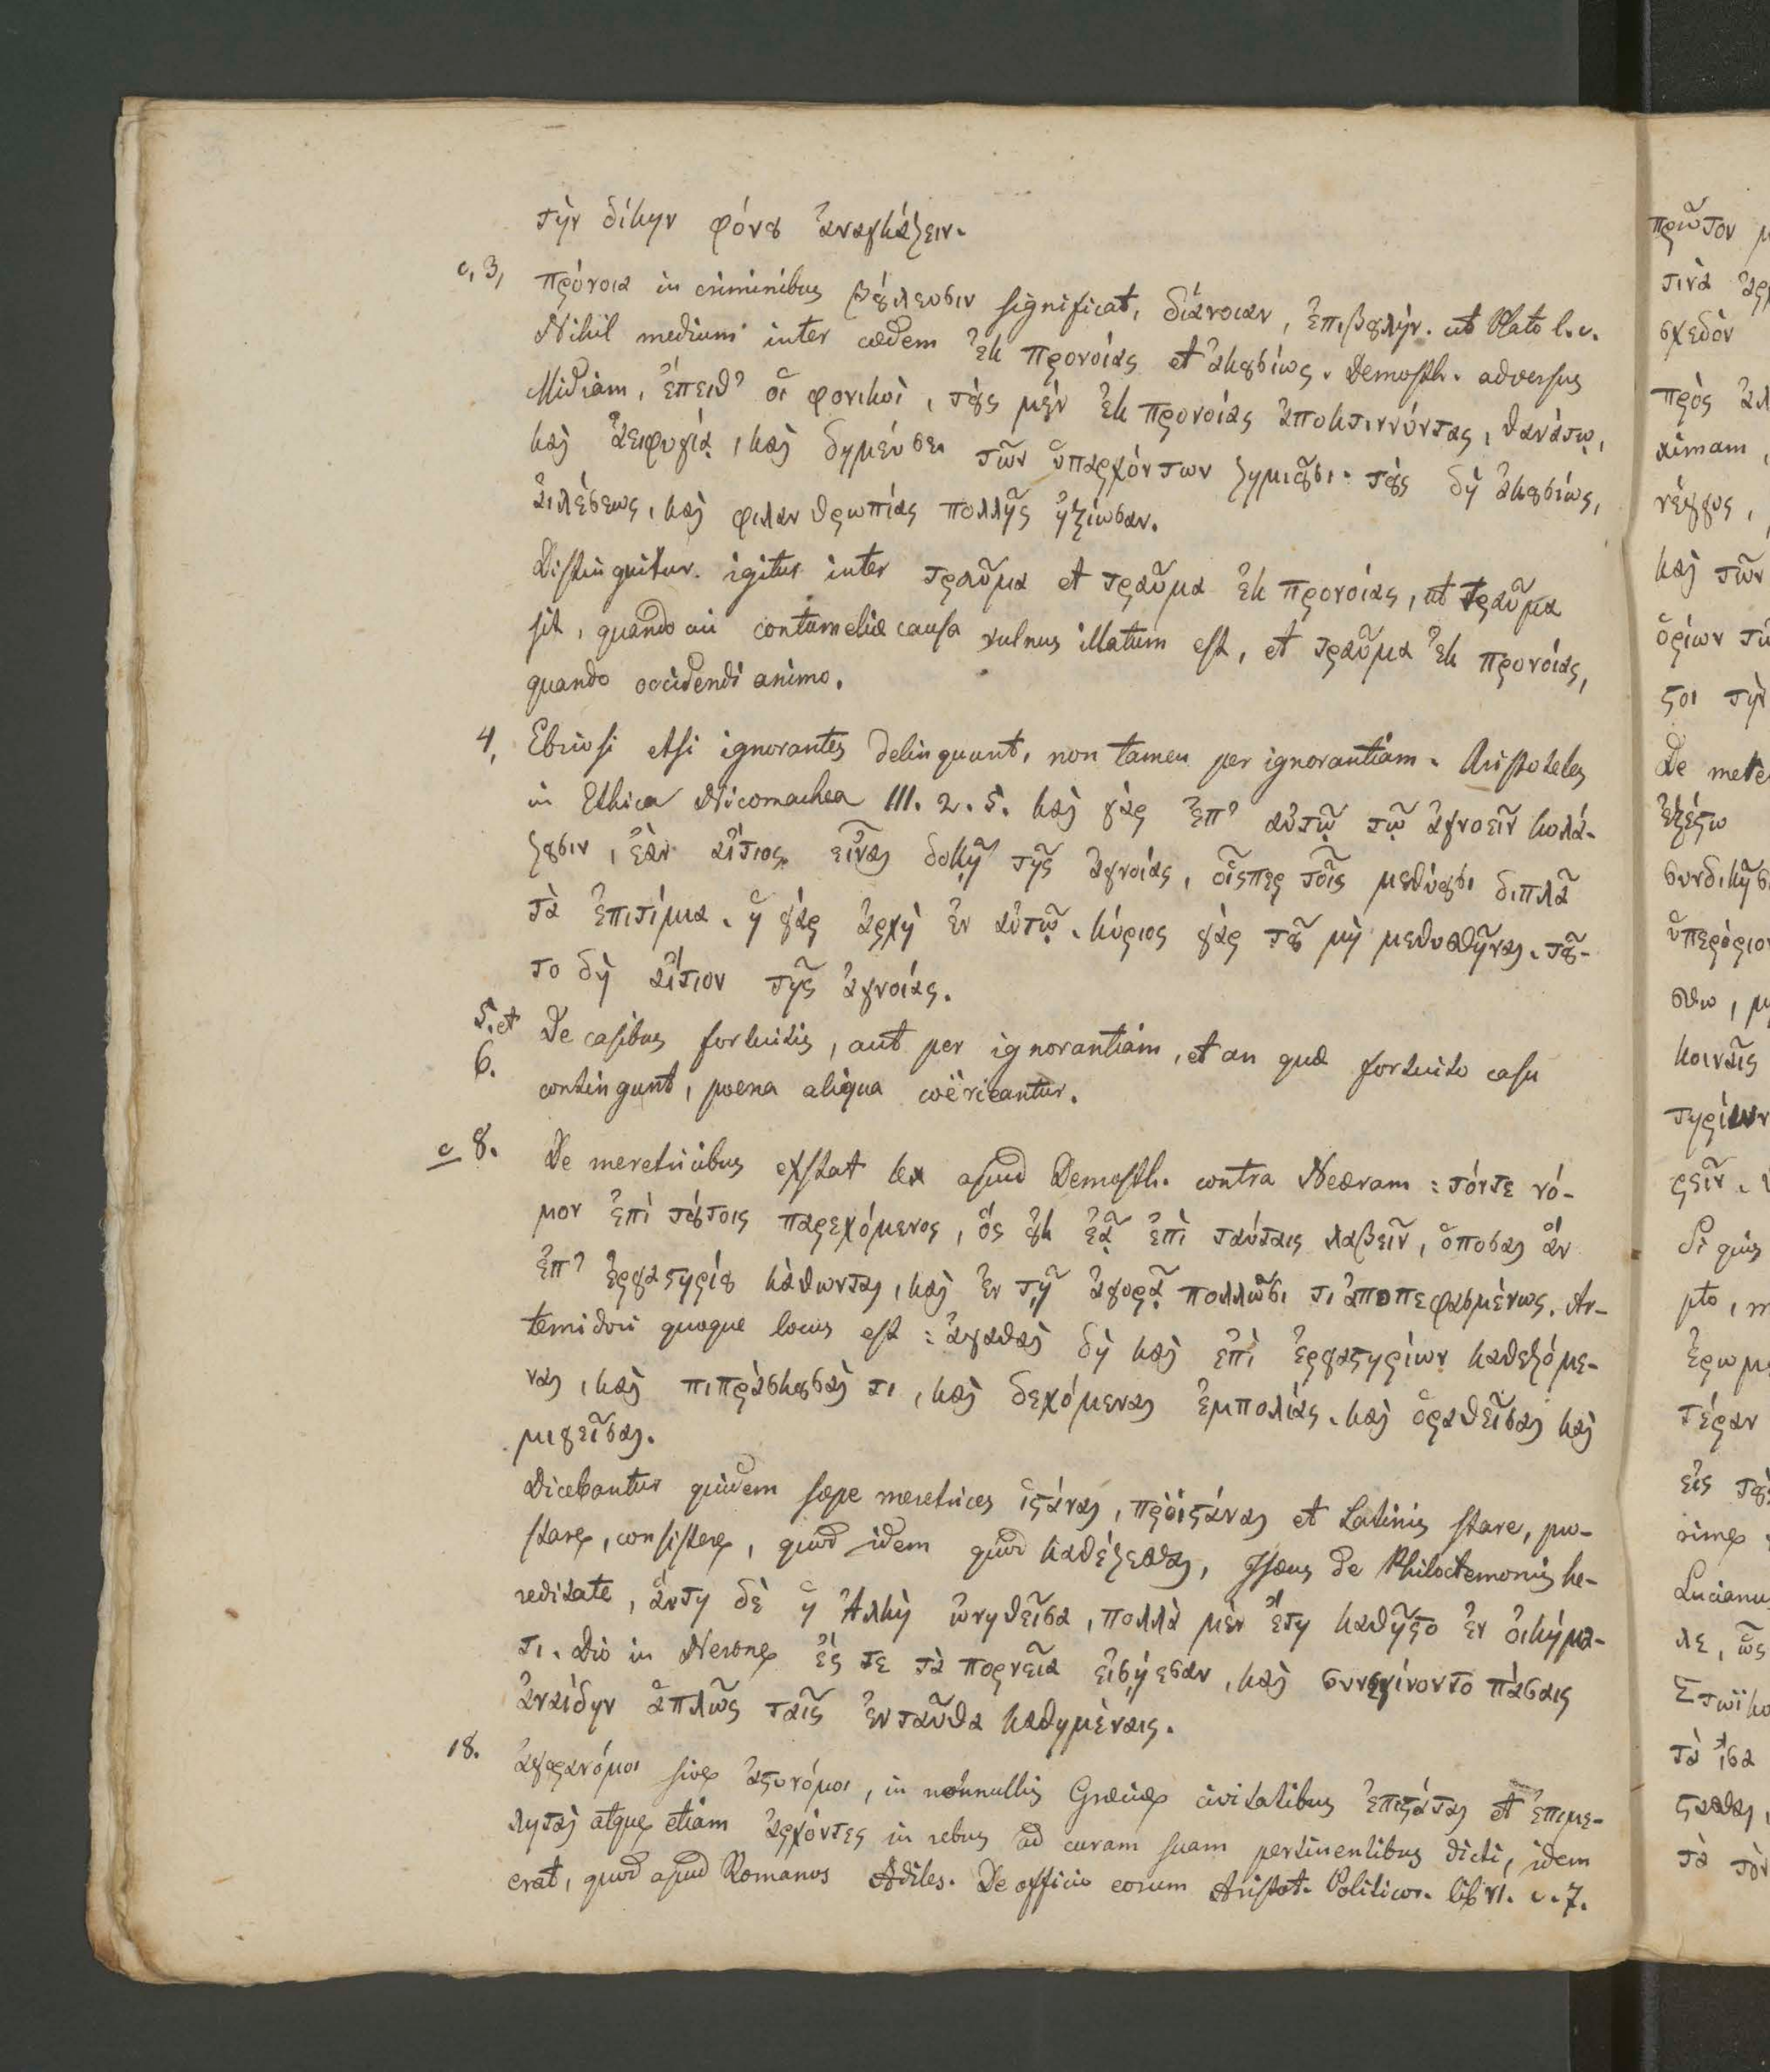 τὴν δίκην φόνȣ ἀναγκάζειν.
c. 3, πρόνοια in criminibus βȣ́λευσιν significat, διάνοιαν, ἐπιβȣλὴν. ut Plato l. c.
Nihil medium inter cædem ἐκ προνοίας et ἀκȣσίως. Demosth. adversus
Midiam, ἔπειθ’ οἱ φονικοὶ, τȣ̀ς μὲν ἐκ προνοίας ἀποκτιννύντας, θανάτῳ,
καὶ ἀειφυγίᾳ, καὶ δημεύσει τῶν ὑπαρχόντων ζημιȣ͂σι. τȣ̀ς δὴ ἀκȣσίως,
αἰλέσεως, καὶ φιλανθρωπίας πολλῆς ἠξίωσαν.
Distinguitur igitur inter τραῦμα et τραῦμα ἐκ προνοίας, ut τραῦμα
sit, quando cui contumeliæ causa vulnus illatum est, et τραῦμα ἐκ προνοίας,
quando occidendi animo.
4, Ebriosi etsi ignorantes delinquunt, non tamen per ignorantiam. Aristoteles
in Ethica Nicomachea III. 2. 5. καὶ γὰρ ἐπ’ αὐτῷ τῷ ἀγνοεῖν κολά-
ζȣσιν, ἐὰν αἴτιος εἶναι δοκῇ τῆς ἀγνοίας, οἷσπερ τοῖς μεθύȣσι διπλᾶ
τὰ ἐπιτίμια. ἡ γὰρ ἀρχὴ ἐν αὐτῷ. κύριος γὰρ τȣ͂ μὴ μεθυσθῆναι. τȣ͂-
το δὴ αἴτιον τῆς ἀγνοίας.
5. et De casibus fortuitis, aut per ignorantiam, et an quæ fortuito casu
6. contingunt, poena aliqua coërceantur.
c 8. De meretricibus exstat lex apud Demosth. contra Neæram: τόντε νό-
μον ἐπὶ τȣ́τοις παρεχόμενος, ὃς ȣ̓κ ἐᾷ ἐπὶ ταύταις λαβεῖν, ὁπόσαι ἂν
ἐπ’ ἐργαστηρίȣ κάθωνται, καὶ ἐν τῇ ἀγορᾷ πολλῶσι τι ἀποπεφασμένως. Ar-
temidori quoque locus est: ἀγαθαὶ δὴ καὶ ἐπὶ ἐργαστηρίων καθεζόμε-
ναι, καὶ πιπράσκȣσαὶ τι, καὶ δεχόμεναι ἐμπολὰς. καὶ ὁραθεῖσαι καὶ
μιγεῖσαι.
Dicebantur quidem sæpe meretrices ἱστάναι, πρὀϊστάναι et Latinis stare, pro-
stare, consistere, quod idem quod καθέζεσθαι, Isæus de Philoctemonis he-
reditate, ἅυτη δὲ ἡ Ἀλκὴ ὠνηθεῖσα, πολλὰ μὲν ἔτη καθῆστο ἐν ὀικήμα-
τι. Dio in Nerone ἔς τε τὰ πορνεῖα εἰσῄεσαν, καὶ συνεγίνοντο πάσαις
ἀναίδην ἁπλῶς ταῖς ἐνταῦθα καθημέναις.
18. ἀγορανόμοι sive ἀστυνόμοι, in nonnullis Græciæ civitatibus ἐπιστάται et ἐπιμε-
ληταὶ atque etiam ἀρχόντες in rebus ad curam suam pertinentibus dicti, idem
erat, quod apud Romanos Ædiles. De officio eorum Aristot. Politicor. lib VI. c. 7.
πρῶτον
τινὰ
σχεδὸν
πρὸς
καὶ τῶν
ὁρίων
τὴν
De
ἐξέστω
ὑπερόριον
κοιναῖς
Si quis
τέραν
εἰς
Lucianus
λε, ὡς
τὰ ἴσα
τὰ τὸν